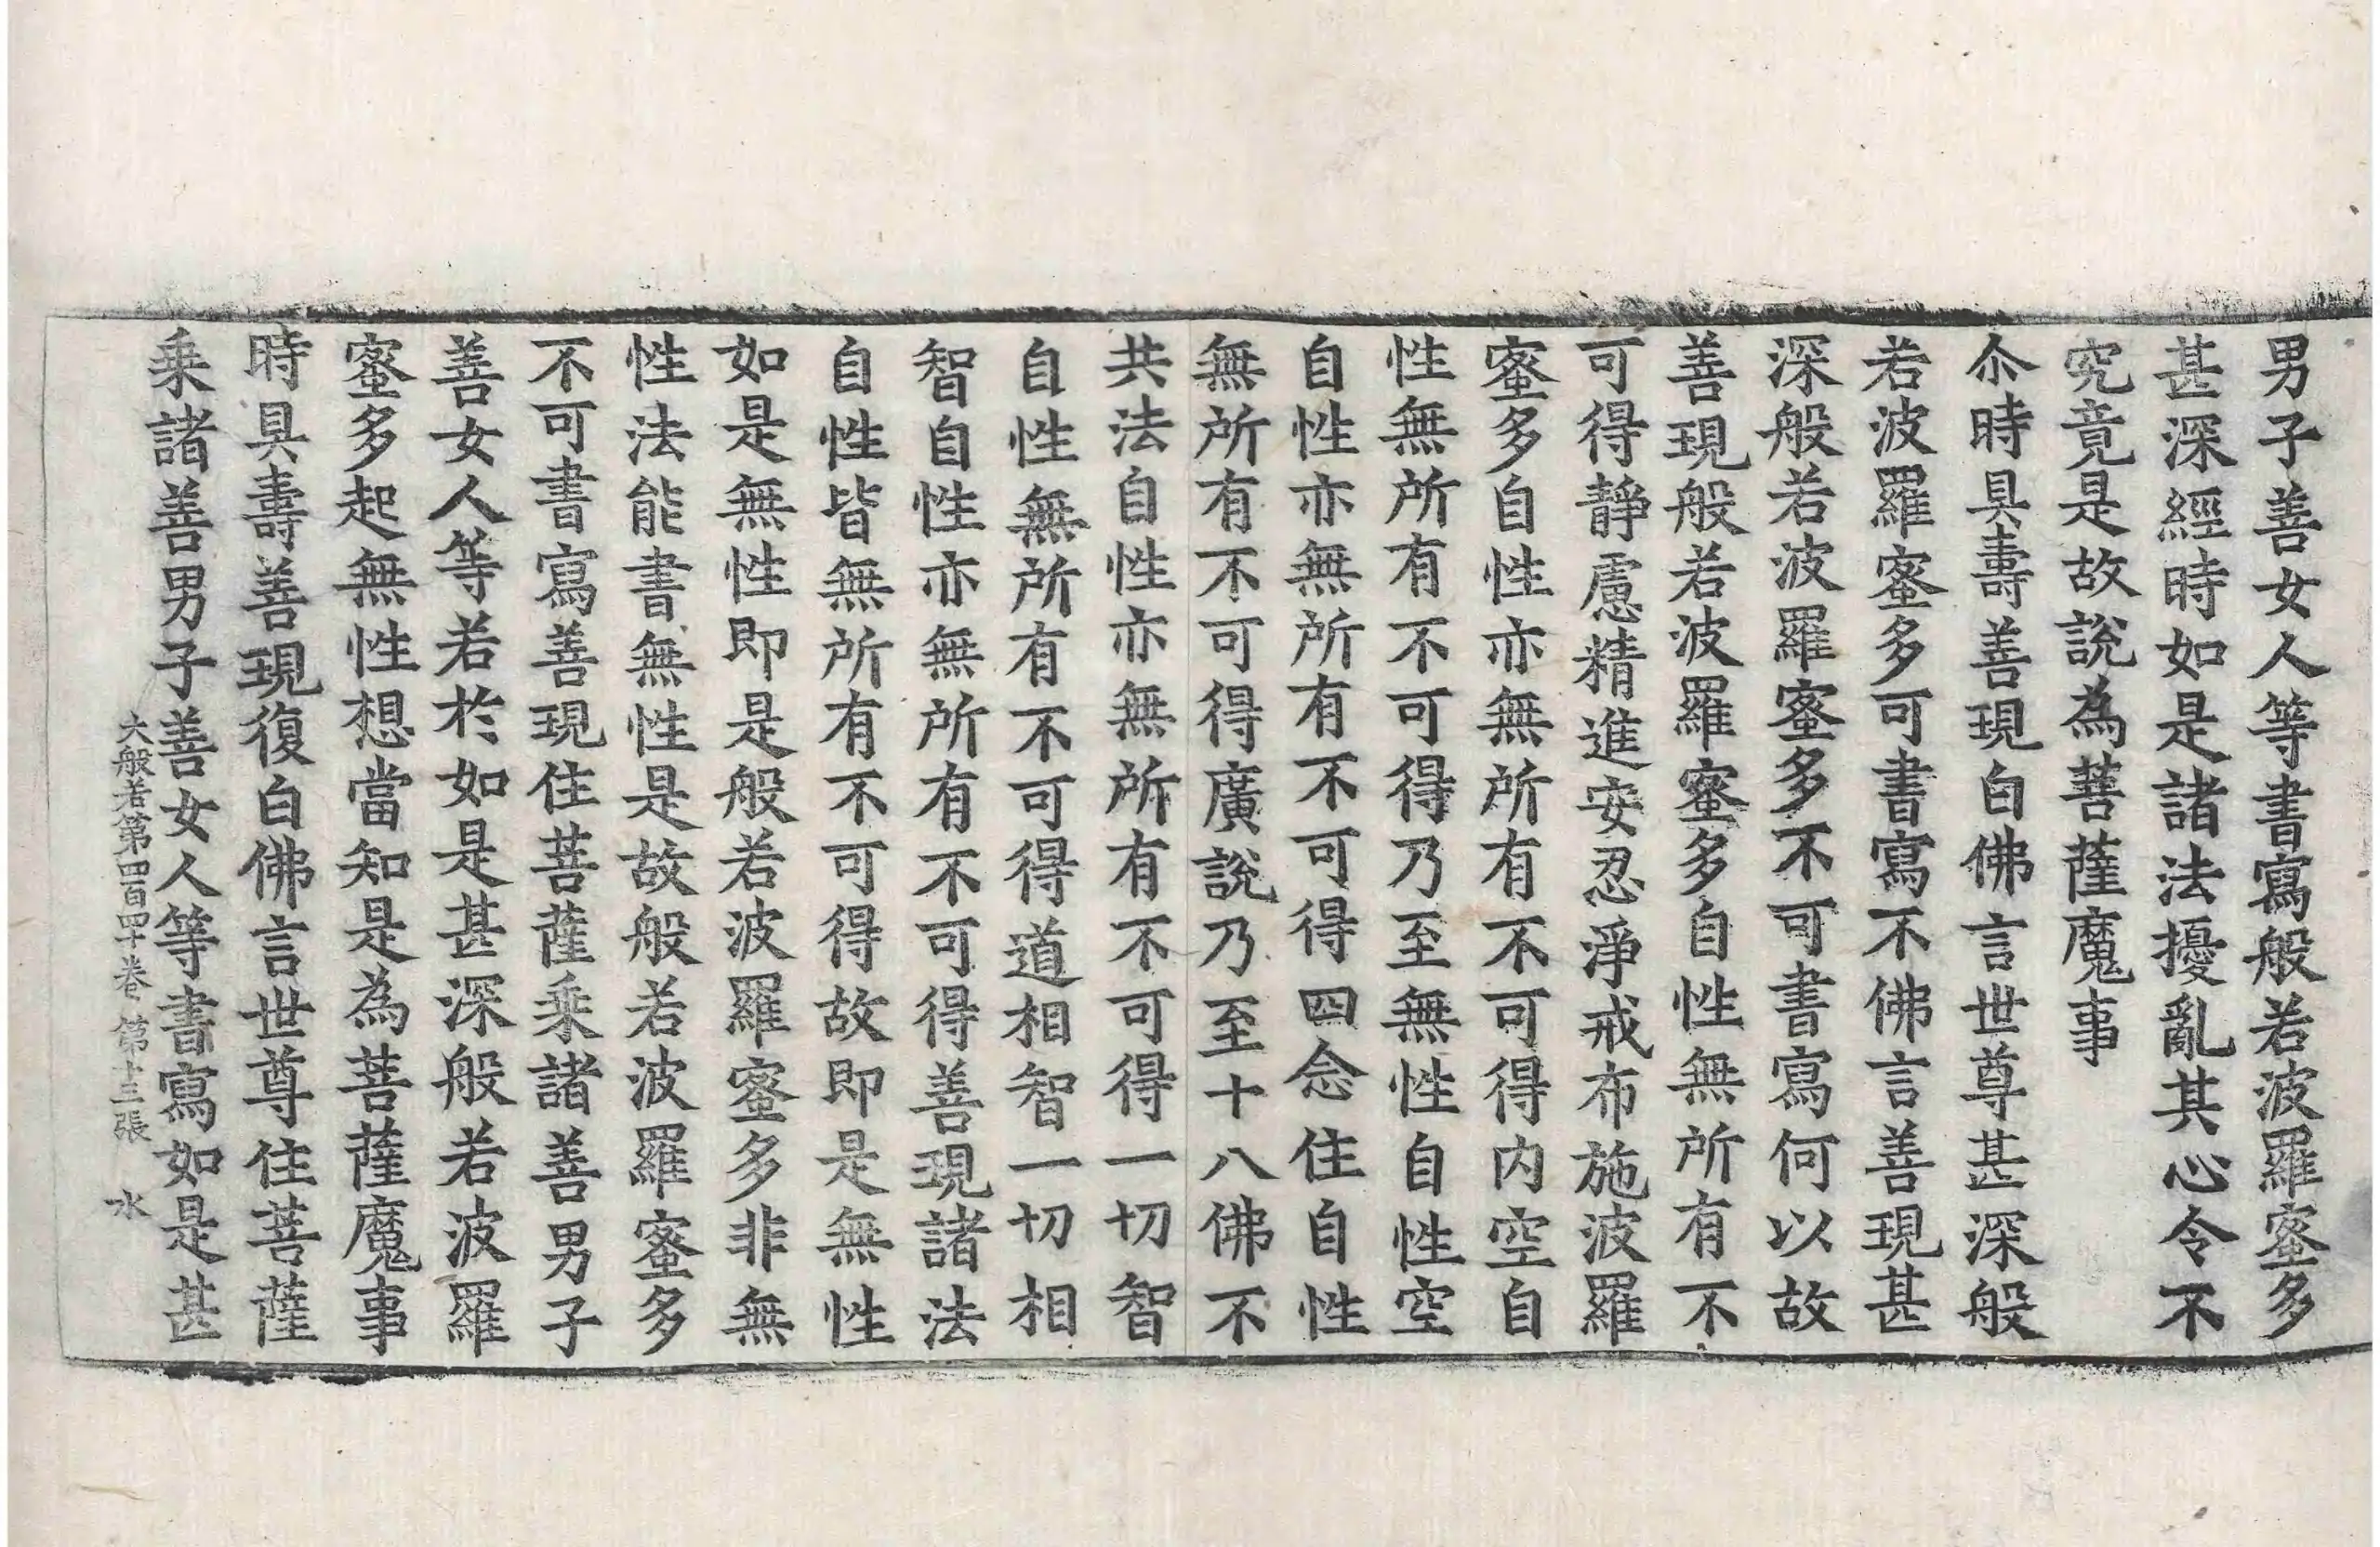 男子善女人等書寫般若波羅蜜多
甚深經時如是諸法擾亂其心令不
究竟是故說為菩薩魔事
尒時具壽善現白佛言世尊甚深般
若波羅蜜多可書寫不佛言善現甚
深般若波羅蜜多不可書寫何以故
善現般若波羅蜜多自性無所有不
可得靜慮精進安忍淨戒布施波羅
蜜多自性亦無所有不可得内空自
性無所有不可得乃至無性自性空
自性亦無所有不可得四念住自性
無所有不可得廣說乃至十八佛不
共法自性亦無所有不可得一切智
自性無所有不可得道相智一切相
智自性亦無所有不可得善現諸法
自性皆無所有不可得故即是無性
如是無性即是般若波羅蜜多非無
性法能書無性是故般若波羅蜜多
不可書寫善現住菩薩乘諸善男子
善女人等若於如是甚深般若波羅
蜜多起無性想當知是為菩薩魔事
時具壽善現復白佛言世尊住菩薩
乘諸善男子善女人等書寫如是甚
大般若第四百四十卷 第十三張 水